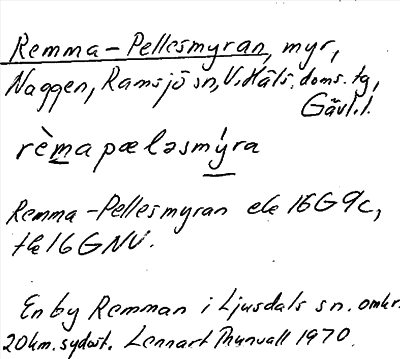 Remma-Pellesmyran, myr,
Naggen, Ramsjö sn, V. Häls. doms. tg,
Gävl.l.
rèma pæləsmýra
Remma-Pellesmyran ek 16G9c,
tk 16GNV.
En by Remman i Ljusdals sn. omkr.
20km. sydost. Lennart Thunvall 1970.